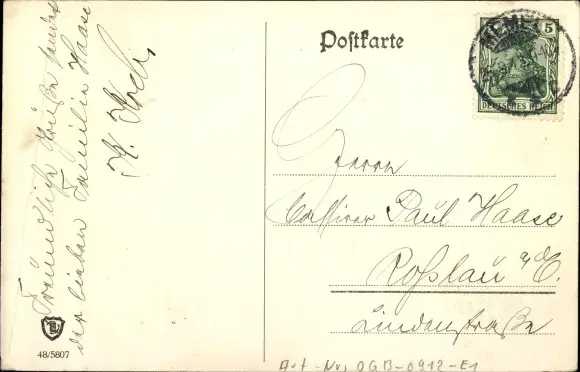 Freundliche Grüße sendet
der lieben Familie Haase
Postkarte
5
MEMEL
DEUTSCHES REICH
Herrn
Cassirer Paul Haase
Roßlau a/d E.
Lindenstraße
48/5807
Art-Nr. OGB-0912-E1